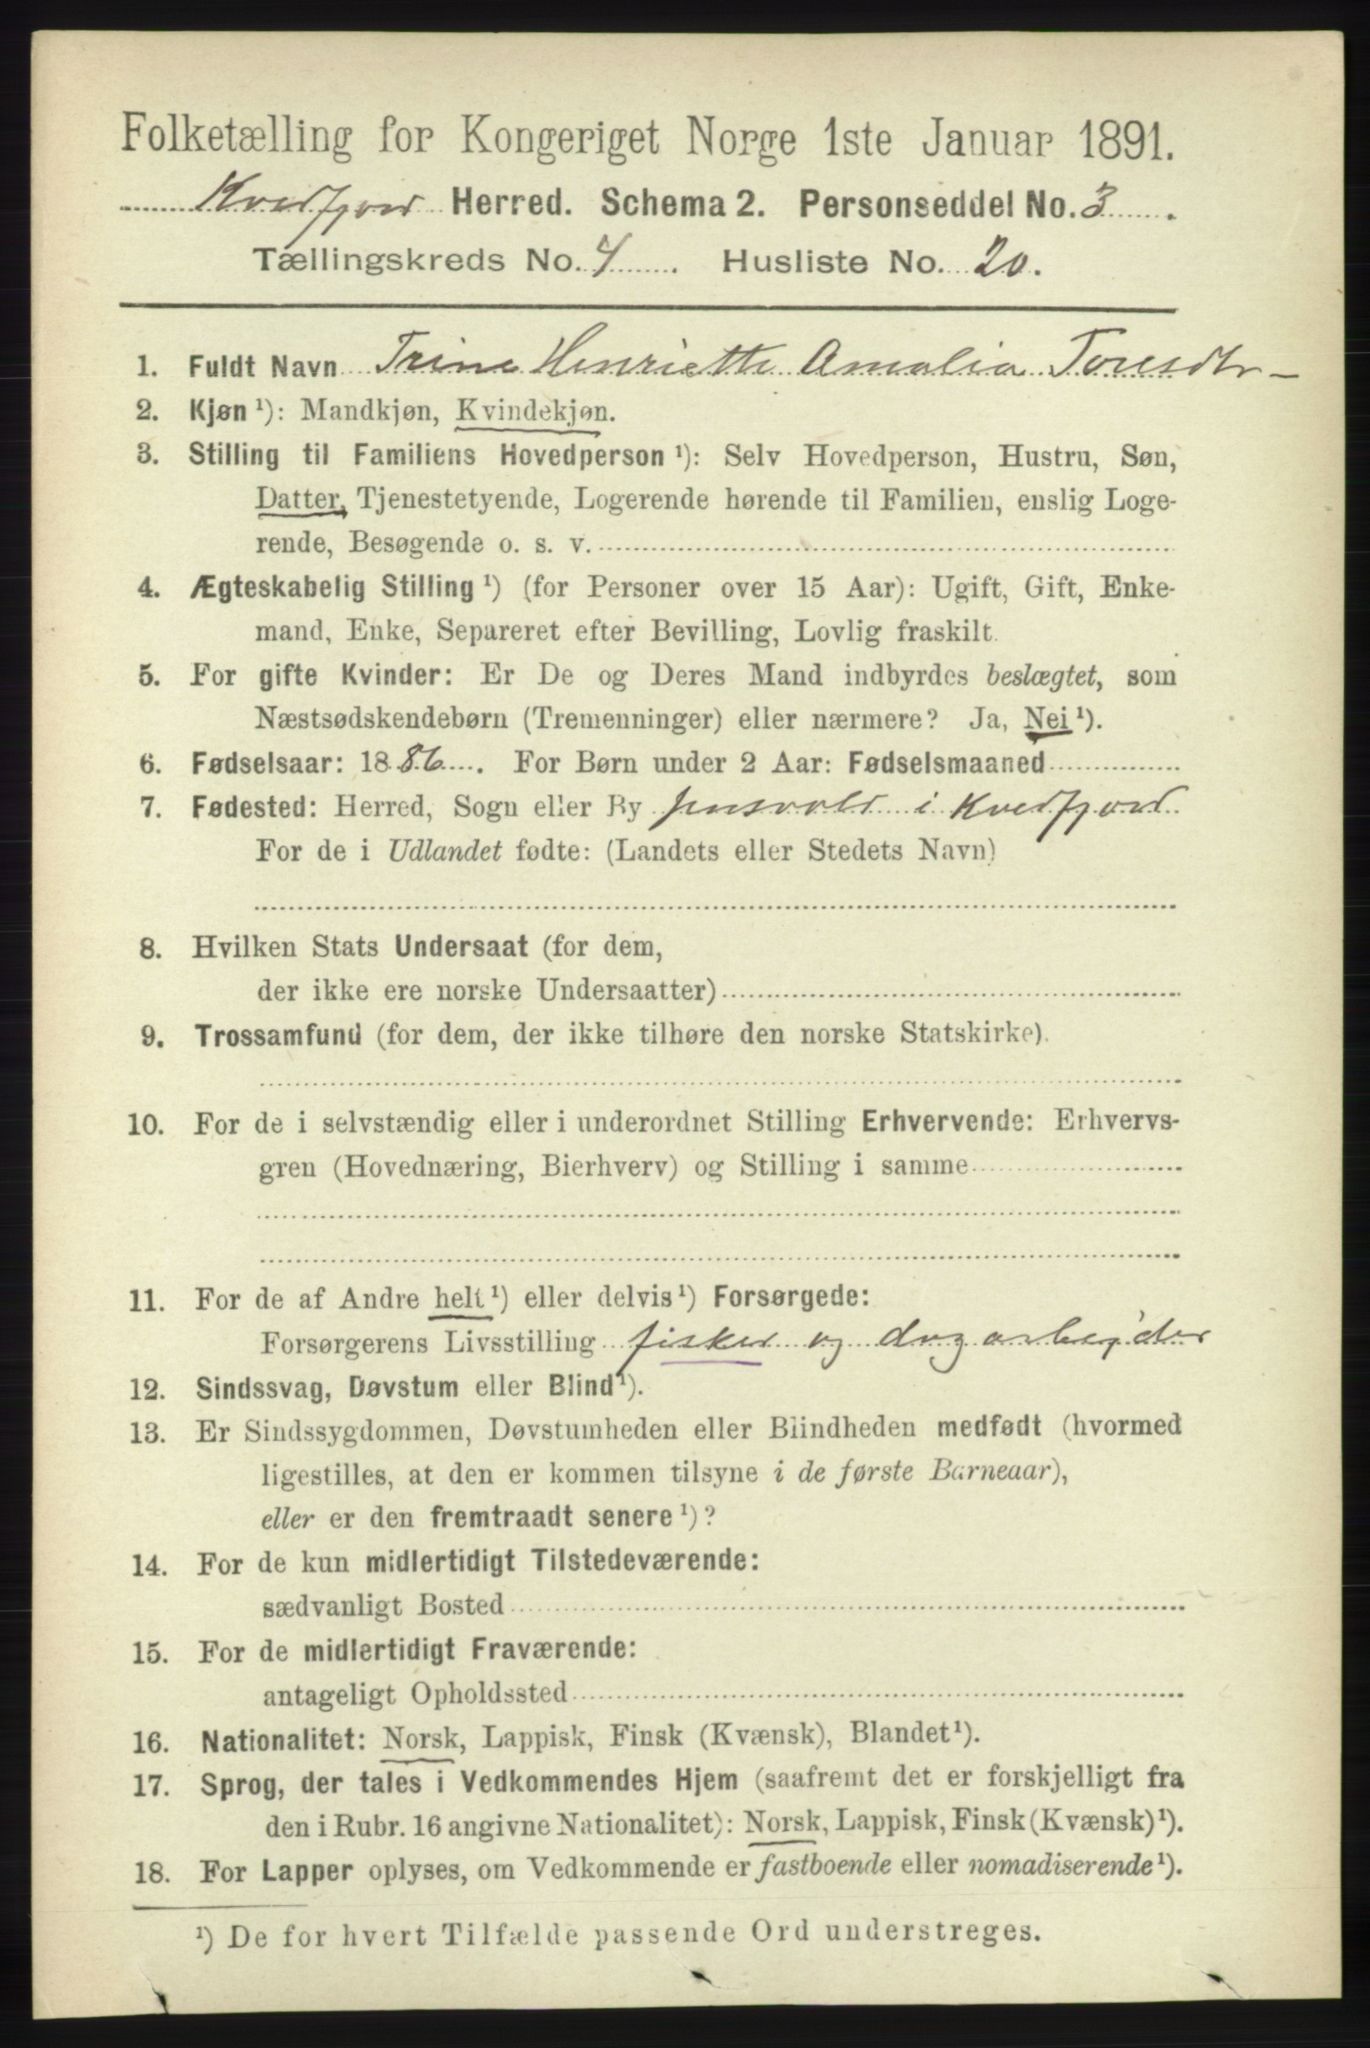 Folketælling for Kongeriget Norge 1ste Januar 1891.
Kvedfjord Herred. Schema 2. Personseddel No. 3.
Tællingskreds No. 4. Husliste No. 20.
1. Fuldt Navn Trine Henriette Amalia Toresdtr
2. Kjøn ¹): Mandkjøn, Kvindekjøn.
3. Stilling til Familiens Hovedperson ¹): Selv Hovedperson, Hustru, Søn,
Datter, Tjenestetyende, Logerende hørende til Familien, enslig Loge-
rende, Besøgende o. s. v.
4. Ægteskabelig Stilling ¹) (for Personer over 15 Aar): Ugift, Gift, Enke-
mand, Enke, Separeret efter Bevilling, Lovlig fraskilt.
5. For gifte Kvinder: Er De og Deres Mand indbyrdes beslægtet, som
Næstsødskendebørn (Tremenninger) eller nærmere? Ja, Nei ¹).
6. Fødselsaar: 1886. For Børn under 2 Aar: Fødselsmaaned
7. Fødested: Herred, Sogn eller By i Kvedfjord
For de i Udlandet fødte: (Landets eller Stedets Navn)
8. Hvilken Stats Undersaat (for dem,
der ikke ere norske Undersaatter)
9. Trossamfund (for dem, der ikke tilhøre den norske Statskirke).
10. For de i selvstændig eller i underordnet Stilling Erhvervende: Erhvervs-
gren (Hovednæring, Bierhverv) og Stilling i samme
11. For de af Andre helt ¹) eller delvis ¹) Forsørgede:
Forsørgerens Livsstilling fisker og dagarbejder
12. Sindssvag, Døvstum eller Blind ¹).
13. Er Sindssygdommen, Døvstumheden eller Blindheden medfødt (hvormed
ligestilles, at den er kommen tilsyne i de første Barneaar),
eller er den fremtraadt senere ¹)?
14. For de kun midlertidigt Tilstedeværende:
sædvanligt Bosted
15. For de midlertidigt Fraværende:
antageligt Opholdssted
16. Nationalitet: Norsk, Lappisk, Finsk (Kvænsk), Blandet ¹).
17. Sprog, der tales i Vedkommendes Hjem (saafremt det er forskjelligt fra
den i Rubr. 16 angivne Nationalitet): Norsk, Lappisk, Finsk (Kvænsk) ¹).
18. For Lapper oplyses, om Vedkommende er fastboende eller nomadiserende ¹).
¹) De for hvert Tilfælde passende Ord understreges.